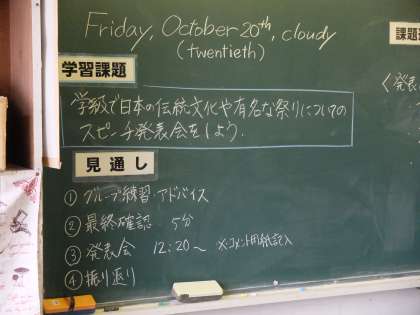 Friday, October 20th, cloudy
(twentieth)
学習課題
学級で日本の伝統文化や有名な祭りについての
スピーチ発表会をしよう.
見通し
① グループ練習・アドバイス
② 最終確認 5分
③ 発表会 12:20〜 ※コメント用紙記入
④ 振り返り
課題
〈発表